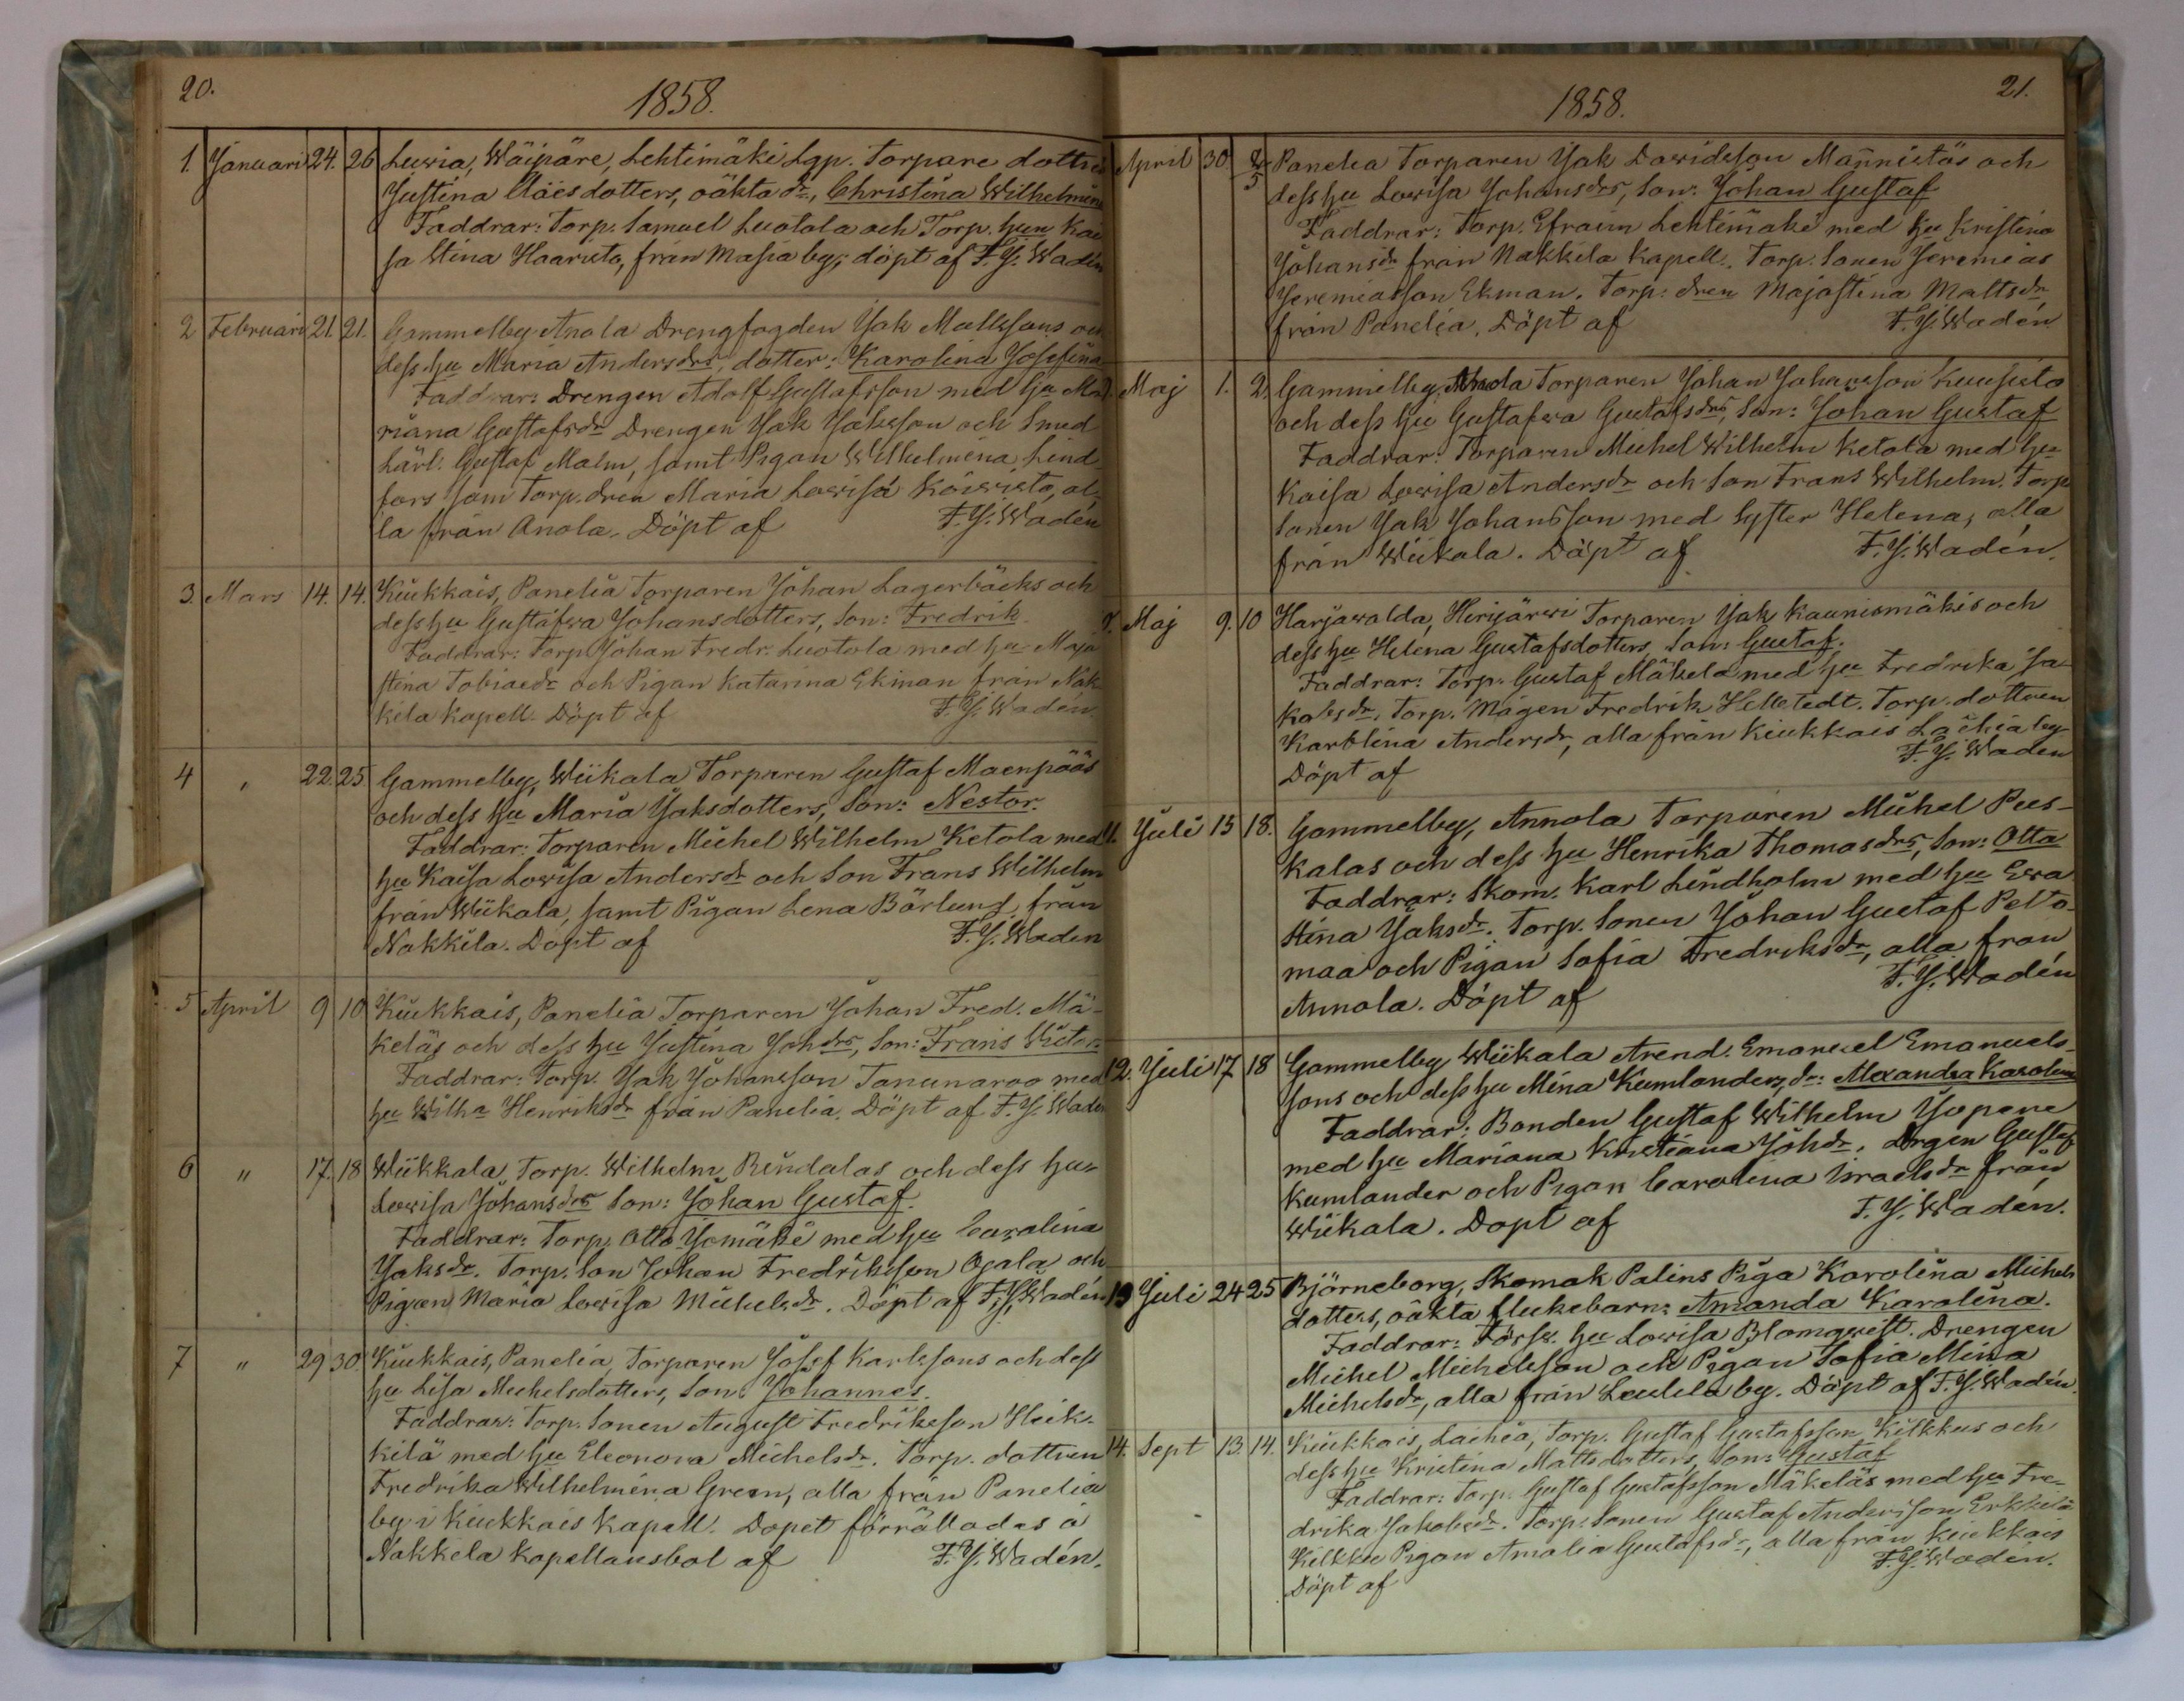 20.
1858.
1. Januari 24. 26 Luvia, Wäipäre, Lehtimäki Lgp. Torpare dotter
Justina Maësdotters, oäkta dr, Christina Wilhelmina
Faddrar: Torp. Samuel Luotola och Torp. hun Kai
sa Stina Haavisto, från Masia by, döpt af F. J. Wadén
2 Februari 21. 21. Gammelby Anola Drengfogden Jak Mattssons och
dess hu Maria Andersdrs, dotter: Karolina Josefina
Faddrar: Drengen Adolf Gustafsson med hu Ma
riana Gustafsdr Drengen Jak Jakssson och Smed
Lärl. Gustaf Malm, samt Pigan Wilhelmina Lind
fors som Torp. dren Maria Lovisa Koivisto, al
la från Anola. Döpt af F. J. Wadén
3. Mars 14. 14. Kiukkais, Panelia Torparen Johan Lagerbäcks och
dess hu Gustafva Johansdotters, Son: Fredrik.
Faddrar: Torp Johan Fredr. Luotola med hu Maja
stina Tobiaedr och Pigan Katarina Ekman från Nak
kila Kapell. Döpt af F. J. Wadén.
4 " 22. 25 Gammelby, Wiikala Torparen Gustaf Maenpääs
och dess hu Maria Jaksdotters, Son: Nestor.
Faddrar: Torparen Michel Wilhelm Ketola med
hu Kaisa Lovisa Andersdr och Son Frans Wilhelm
från Wiikala, samt Pigan Lena Börlund från
Nakkila. Döpt af F. J. Wadén
5 April 9 10 Kiukkais, Panelia Torparen Johan Fred. Mä-
keläs och dess hu Justina Johdrs, Son: Frans Victor
Faddrar: Torp. Jak Johansson Tanunaroo med
hu Wilha Henriksdr från Panelia. Döpt af F. J. Wadén
6 " 17. 18 Wiikkala Torp. Wilhelm Rindalas och dess hu
Lovisa Johansdrs Son: Johan Gustaf.
Faddrar: Torp. Otto Isomäki med hu Carolina
Jaksdr. Torp. Son Johan Fredriksson Ojala och
Pigan Maria Lovisa Michelsdr. Döpt af F. J. Wadén
7 " 29 30. Kiukkais, Panelia, Torparen Josef Karlssons och dess
hu Lisa Michelsdotters, Son: Johannes.
Faddrar: Torp. Sonen August Fredriksson Heik-
kilä med hu Eleonora Michelsdr. Torp. dottren
Fredrika Wilhelmina Green, alla från Panelia
by i Kiukkais Kapell. Dopet förrättades å
Nakkila Kapellansbol af F. J. Wadén.
21.
1858.
April 30. 2/5 Panelia Torparen Jak Davidsson Mannistös och
dess hu Lovisa Johansdrs, Son: Johan Gustaf
Faddrar: Torp. Efraim Lehtimäki med hu Kristina
Johansdr från Nakkila Kapell. Torp. Sonen Jeremias
Jeremiasson Ekman. Torp. dren Majastina Mattsdr
från Panelia. Döpt af F. J. Wadén
Maj 1. 2. Gammelby, Anola Torparen Johan Johansson Kuusisto
och dess hu Gustafva Gustafsdrs, Son: Johan Gustaf
Faddrar: Torparen Michel Wilhelm Ketola med hu
Kaisa Lovisa Andersdr och Son Frans Wilhelm. Torp
Sonen Jak Johansson med Syster Helena, alla
från Wiikala. Döpt af F. J. Wadén.
Maj 9. 10 Harjavalda, Hirvjärvi Torparen Jak Kaunismäkis och
dess hu Helena Gustafsdotters, Son: Gustaf.
Faddrar: Torp. Gustaf Mäkelä med hu Fredrika Ja-
kobsdr. Torp. Mågen Fredrik Hellstedt. Torp. dottren
Karolina Andersdr, alla från Kiukkais Laihia by
Döpt af F. J. Wadén
11. Juli 15 18. Gammelby, Annola Torparen Michel Pees-
kalas och dess hu Henrika Thomasdrs, Son: Otta
Faddrar: Skom. Karl Lindholm med hu Eva
Stina Jaksdr. Torp. Sonen Johan Gustaf Pelto-
maa och Pigan Sofia Fredriksdr, alla från
Annola. Döpt af F. J. Wadén
12. Juli 17 18 Gammelby Wiikala Arend. Emanuel Emanuels-
sons och dess hu Mina Kumlanders, dr: Alexandra Karolina
Faddrar: Bonden Gustaf Wilhelm Isopere
med hu Mariana Kristiana Johdr, Drgen Gustaf
Kumlander och Pigan Carolina Israelsdr från
Wiikala. Dopt af F. J. Wadén.
13 Juli 24 25 Björneborg, Skomak Palins Piga Karolina Michels
dotters, oäkta flickebarn: Amanda Karolina.
Faddrar: Torpw. hu Lovisa Blomqvist. Drengen
Michel Michelsson och Pigan Sofia Mina
Michelsdr, alla från Leulila by. Döpt af F. J. Wadén.
14. Sept 13. 14. Kiukkais, Laihia, Torp. Gustaf Gustafsson Kilkkus och
dess hu Kristina Mattsdotters, Son: Gustaf
Faddrar: Torp. Gustaf Gustafsson Mäkeläs med hu Fre-
drika Jakobsdr. Torp. Sonen Gustaf Andersson Erkkilä
Kilkku Pigan Amalia Gustafsdr, alla från Kiukkais
Döpt af F. J. Wadén.